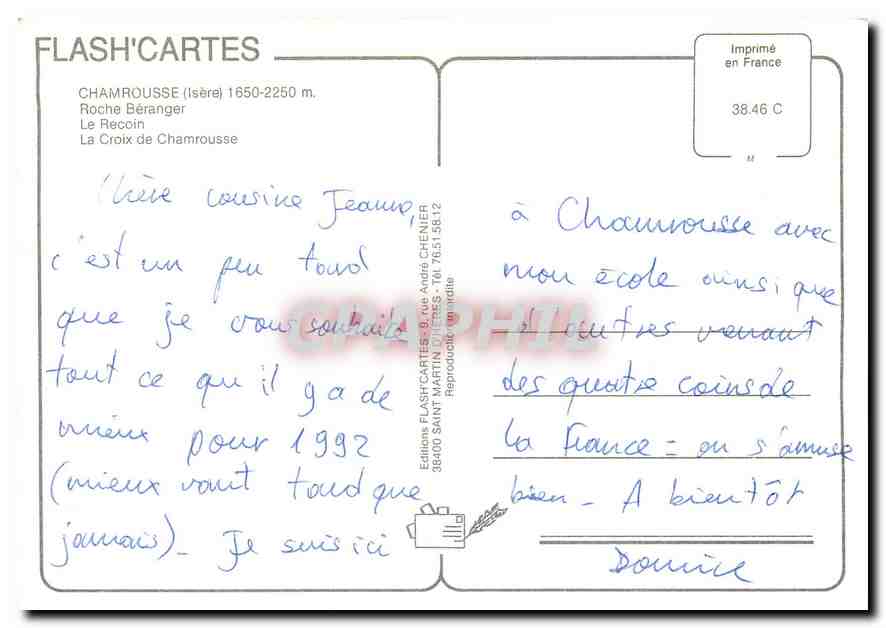 FLASH'CARTES
CHAMROUSSE (Isère) 1650-2250 m.
Roche Béranger
Le Recoin
La Croix de Chamrousse
Imprimé
en France
38.46 C
M
Chère cousine Jeanne,
c'est un peu tard
que je vous souhaite
tout ce qu'il y a de
mieux pour 1992
(mieux vaut tard que
jamais)_ Je suis ici
Editions FLASH'CARTES - 9, rue André CHENIER
38400 SAINT MARTIN D'HERES - Tél. 76.51.58.12
Reproduction interdite
à Chamrousse avec
mon école ainsi que
d'autres venant
des quatre coins de
la France = on s'amuse
bien_ A bientôt
GRAPHIL